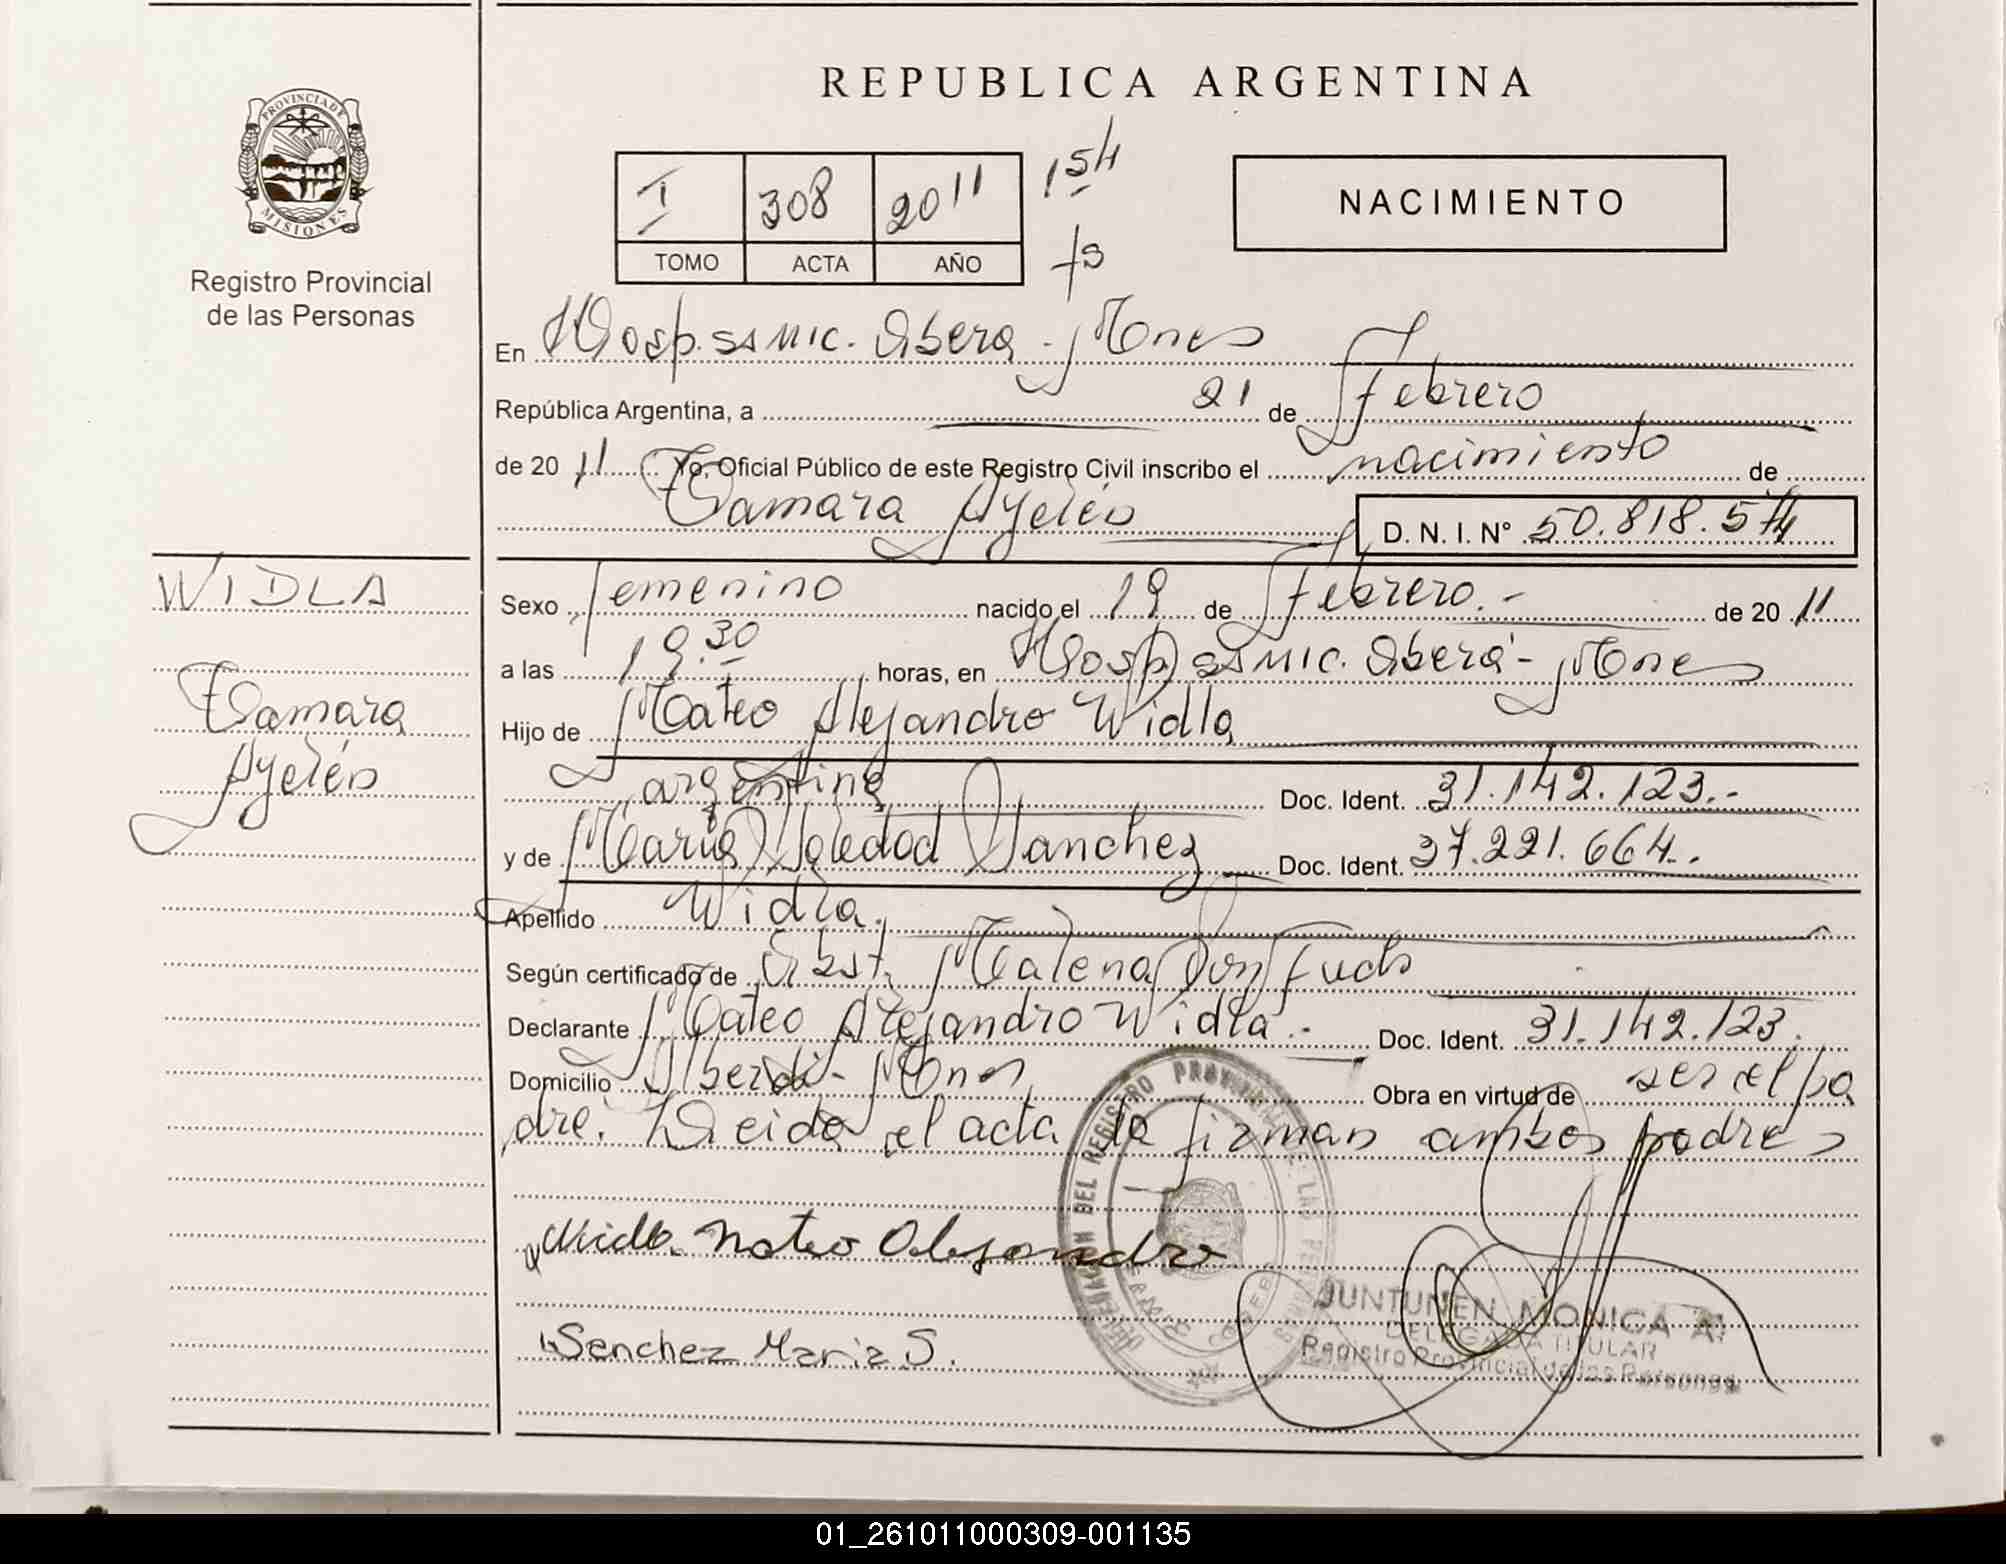 REPUBLICA ARGENTINA
PROVINCIA DE
MISIONES
Registro Provincial
de las Personas
I 308 2011 154
TOMO ACTA AÑO fs
NACIMIENTO
En Hosp. SAMIC. Oberá - Mnes
República Argentina, a 21 de Febrero
de 20 11 Yo, Oficial Público de este Registro Civil inscribo el nacimiento de
Tamara Ayelén D. N. I. Nº 50.818.574
WIDLA
Tamara
Ayelén
Sexo femenino nacido el 19 de Febrero.- de 20 11
a las 19.30 horas, en Hosp SAMIC. Oberá - Mnes
Hijo de Mateo Alejandro Widla
argentina Doc. Ident. 31.142.123.-
y de María Soledad Sanchez Doc. Ident. 37.221.664.
Apellido Widla.
Según certificado de Obst. Malena
Declarante Mateo Alejandro Widla.- Doc. Ident. 31.142.123.
Domicilio Alberdi - Mnes Obra en virtud de ser el pa
dre. Leida el acta la firman ambos padres
Widla Mateo Alejandro
Sanchez Maria S.
DELEGACION DEL REGISTRO PROVINCIAL DE LAS PERSONAS
JUNTUNEN MONICA A.
DELEGADA TITULAR
Registro Provincial de las Personas
01_261011000309-001135